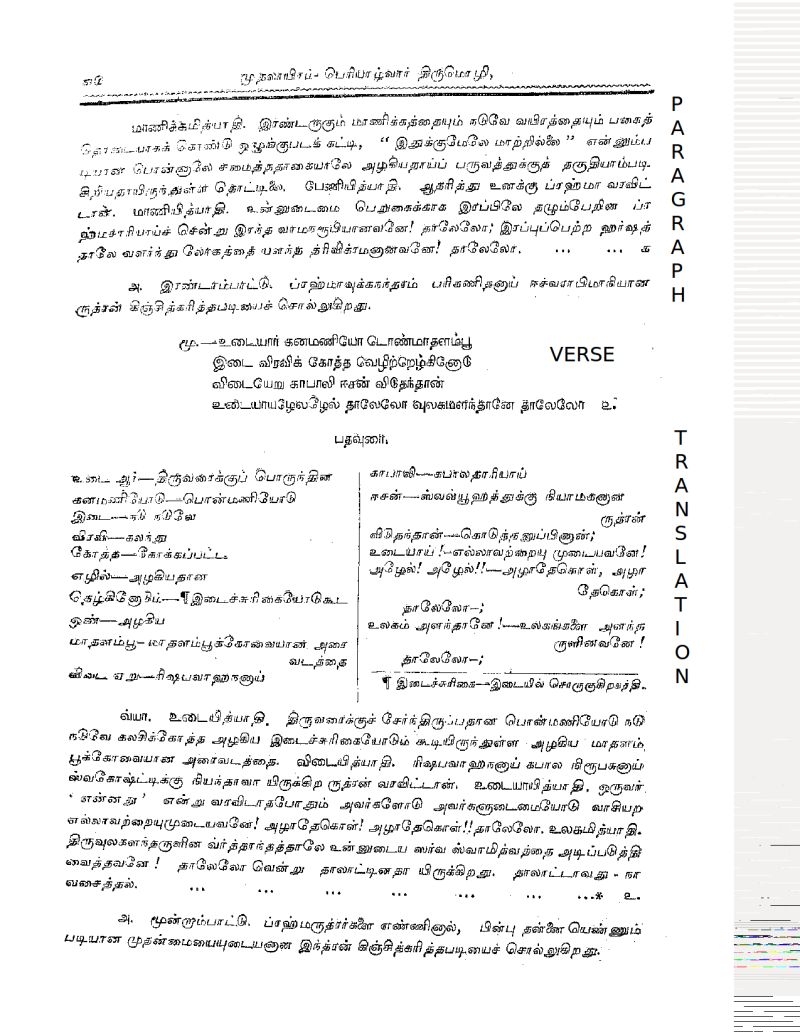 முதலாயிரம்- பெரியாழ்வார் திருமொழி,
மாணிக்கமித்யாதி. இரண்டருகும் மாணிக்கத்தையும் நடுவே வயிரத்தையும் பகைத்
தொடையாகக் கொண்டு ஒழுக்குபடக் கட்டி, “ இதுக்குமேலே மாற்றில்லை ” என்னும்ப
டியான பொன்னாலே சமைத்ததாகையாலே அழகியதாய்ப் பருவத்துக்குத் தகுதியாம்படி
சிறியதாயிருந்துள்ள தொட்டிலை. பேணியித்யாதி. ஆதரித்து உனக்கு ப்ரஹ்மா வரவிட்
டான். மாணியித்யாதி. உன்னுடைமை பெறுகைக்காக இரப்பிலே தழும்பேறின ப்ர
ஹ்மசாரியாய்ச் சென்று இரந்த வாமநரூபியானவனே! தாலேலோ; இரப்புப்பெற்ற ஹர்ஷத்
தாலே வளர்ந்து லோகத்தை யளந்த த்ரிவிக்ரமனானவனே! தாலேலோ. ... ... க
அ. இரண்டாம்பாட்டு. ப்ரஹ்மாவுக்கநந்தரம் பரிகணிதனாய் ஈச்வராபிமாநியான
ருத்ரன் கிஞ்சித்கரித்தபடியைச் சொல்லுகிறது.
மூ.—உடையார் கனமணியோ டொண்மாதளம்பூ
இடை விரவிக் கோத்த வெழிற்றெழ்கினோடு
விடையேறு காபாலி ஈசன் விடுதந்தான்
உடையாயழேலழேல் தாலேலோ வுலகமளந்தானே தாலேலோ உ.
PARAGRAPH
VERSE
பதவுரை.
உடை ஆர்—திருவரைக்குப் பொருந்தின
கனமணியோடு—பொன்மணியோடு
இடை—நடு நடுவே
விரவி—கலந்து
கோத்த—கோக்கப்பட்ட
எழில்—அழகியதான
தெழ்கினோடும்—¶இடைச்சுரிகையோடுகூட
ஒண்—அழகிய
மாதளம்பூ—மாதளம்பூக்கோவையான அரை
வடத்தை
விடை ஏறு—ரிஷபவாஹநனாய்
காபாலி—கபாலதாரியாய்
ஈசன்—ஸ்வவ்யூஹத்துக்கு நியாமகனான
ருத்ரன்
விடுதந்தான்—கொடுத்தனுப்பினான்;
உடையாய்!—எல்லாவற்றையு முடையவனே!
அழேல்! அழேல்!!—அழாதேகொள், அழா
தேகொள்;
தாலேலோ—;
உலகம் அளந்தானே!—உலகங்களை அளந்த
ருளினவனே!
தாலேலோ—;
¶ இடைச்சுரிகை—இடையில் சொருகுகிறகத்தி.
TRANSLATION
வ்யா. உடையித்யாதி. திருவரைக்குச் சேர்ந்திருப்பதான பொன்மணியோடு நடு
நடுவே கலசிக்கோத்த அழகிய இடைச்சுரிகையோடும் கூடியிருந்துள்ள அழகிய மாதளம்
பூக்கோவையான அரைவடத்தை. விடையித்யாதி. ரிஷபவாஹநனாய் கபால நிரூபகனாய்
ஸ்வகோஷ்ட்டிக்கு நியந்தாவா யிருக்கிற ருத்ரன் வரவிட்டான். உடையாயித்யாதி. ஒருவர்
‘ என்னது ’ என்று வரவிடாதபோதும் அவர்களோடு அவர்களுடைமையோடு வாசியற
எல்லாவற்றையுமுடையவனே! அழாதேகொள்! அழாதேகொள்!! தாலேலோ. உலகமித்யாதி.
திருவுலகளந்தருளின வ்ர்த்தாந்தத்தாலே உன்னுடைய ஸர்வ ஸ்வாமித்வத்தை அடிப்படுத்தி
வைத்தவனே! தாலேலோ வென்று தாலாட்டினதா யிருக்கிறது. தாலாட்டாவது - நா
வசைத்தல். ... ... ... ... ... ...* உ.
அ. மூன்றாம்பாட்டு. ப்ரஹ்மருத்ரர்களை எண்ணினால், பின்பு தன்னை யெண்ணும்
படியான முதன்மையையுடையனான இந்த்ரன் கிஞ்சித்கரித்தபடியைச் சொல்லுகிறது.